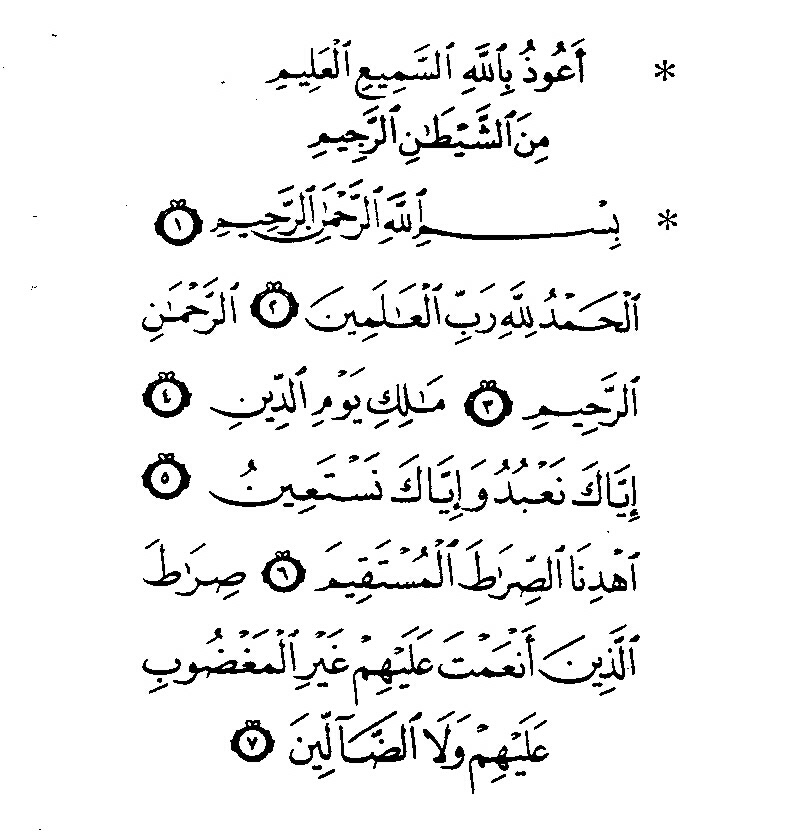 * أَعُوذُ بِٱللَّهِ ٱلسَّمِيعِ ٱلْعَلِيمِ
مِنَ ٱلشَّيْطَٰنِ ٱلرَّجِيمِ
* بِسْمِ ٱللَّهِ ٱلرَّحْمَٰنِ ٱلرَّحِيمِ ١
ٱلْحَمْدُ لِلَّهِ رَبِّ ٱلْعَٰلَمِينَ ٢ ٱلرَّحْمَٰنِ
ٱلرَّحِيمِ ٣ مَٰلِكِ يَوْمِ ٱلدِّينِ ٤
إِيَّاكَ نَعْبُدُ وَإِيَّاكَ نَسْتَعِينُ ٥
ٱهْدِنَا ٱلصِّرَٰطَ ٱلْمُسْتَقِيمَ ٦ صِرَٰطَ
ٱلَّذِينَ أَنْعَمْتَ عَلَيْهِمْ غَيْرِ ٱلْمَغْضُوبِ
عَلَيْهِمْ وَلَا ٱلضَّآلِّينَ ٧